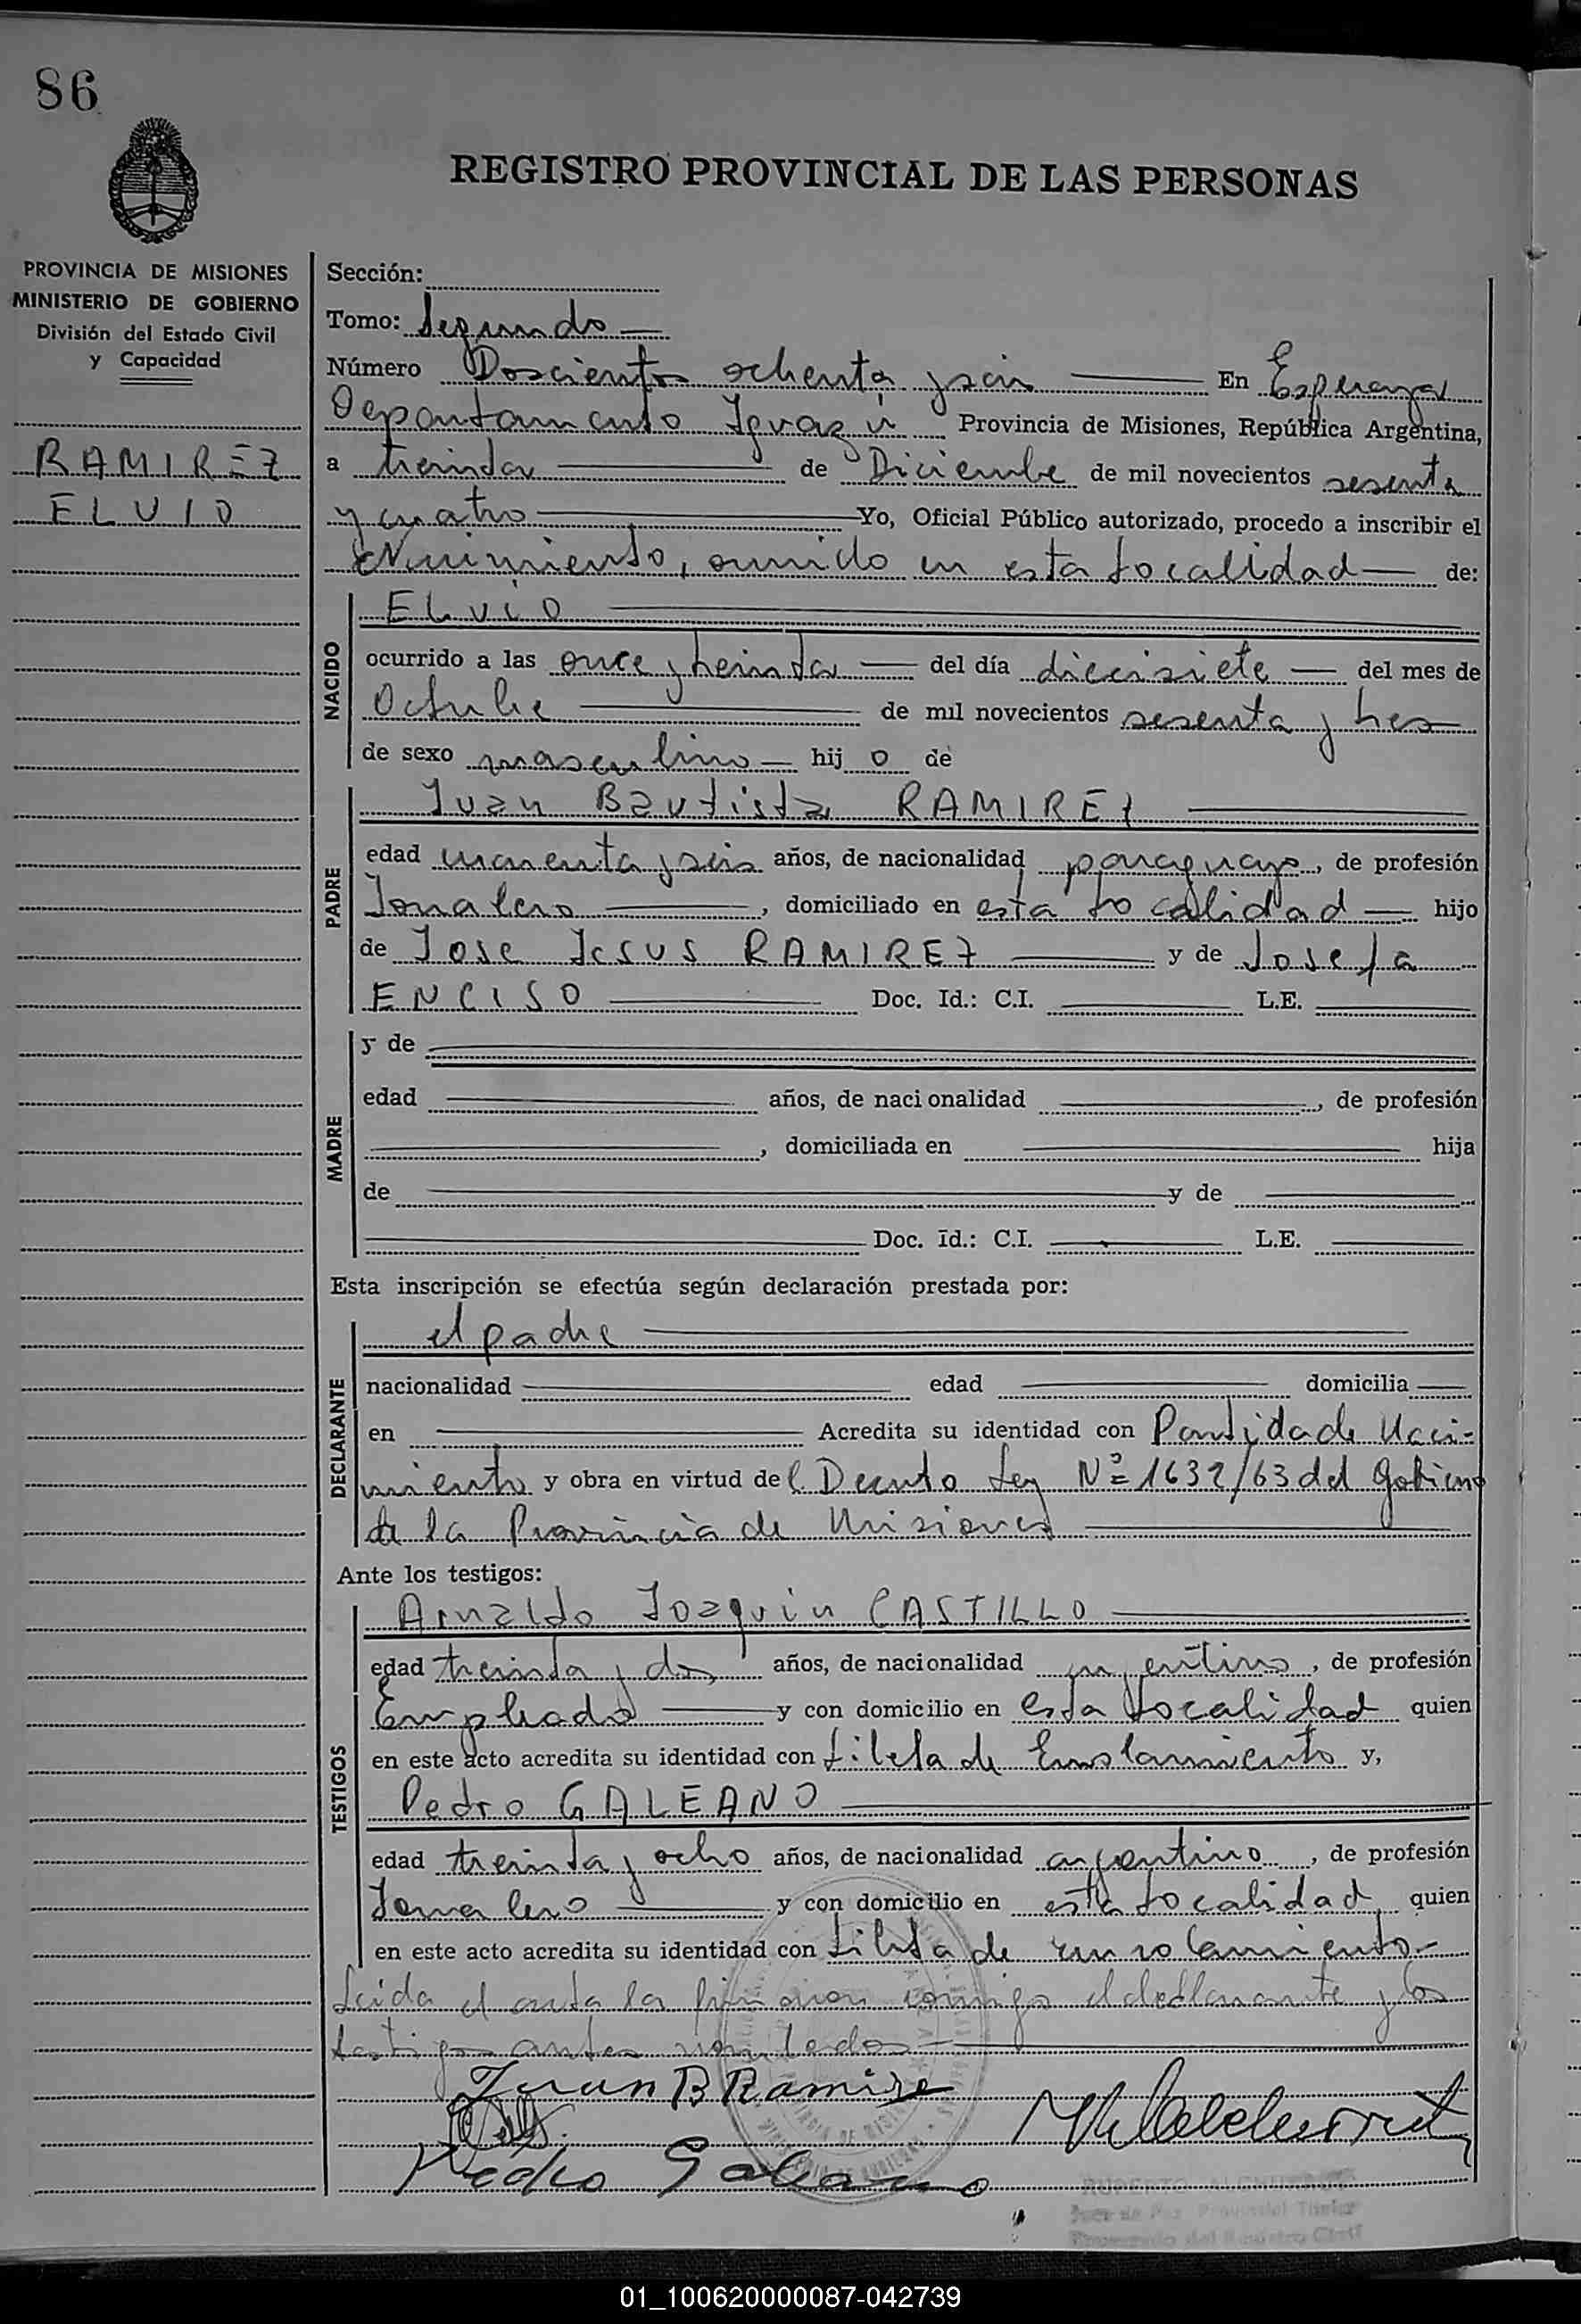 86
REGISTRO PROVINCIAL DE LAS PERSONAS
PROVINCIA DE MISIONES
MINISTERIO DE GOBIERNO
División del Estado Civil
y Capacidad
RAMIREZ
ELUIO
Sección:
Tomo: Segundo
Número Doscientos ochenta y seis En Esperanza
Departamento Iguazú Provincia de Misiones, República Argentina,
a treinta de Diciembre de mil novecientos sesenta
y cuatro Yo, Oficial Público autorizado, procedo a inscribir el
Nacimiento, ocurrido en esta localidad de:
NACIDO
ELUIO
ocurrido a las once y treinta del día diecisiete del mes de
Octubre de mil novecientos sesenta y tres
de sexo masculino hijo de
PADRE
Juan Bautista RAMIREZ
edad cuarenta y seis años, de nacionalidad paraguayo, de profesión
Jornalero, domiciliado en esta localidad hijo
de Jose Jesus RAMIREZ y de Josefa
ENCISO Doc. Id.: C.I. L.E.
MADRE
y de
edad años, de nacionalidad , de profesión
, domiciliada en hija
de y de
Doc. Id.: C.I. L.E.
Esta inscripción se efectúa según declaración prestada por:
DECLARANTE
el padre
nacionalidad edad domicilia
en Acredita su identidad con Partida de Naci-
miento y obra en virtud del Decreto Ley Nº 1632/63 del Gobierno
de la Provincia de Misiones
Ante los testigos:
TESTIGOS
Arnaldo Joaquin CASTILLO
edad treinta y dos años, de nacionalidad argentino, de profesión
Empleado y con domicilio en esta localidad quien
en este acto acredita su identidad con Libreta de Enrolamiento y,
Pedro GALEANO
edad treinta y ocho años, de nacionalidad argentino, de profesión
Jornalero y con domicilio en esta localidad, quien
en este acto acredita su identidad con Libreta de enrolamiento
Leida el acta la firmaron conmigo el declarante y los
testigos antes nombrados
Juan B Ramire
Pedro Galeano
Juez de Paz Provincial Titular
01_100620000087-042739